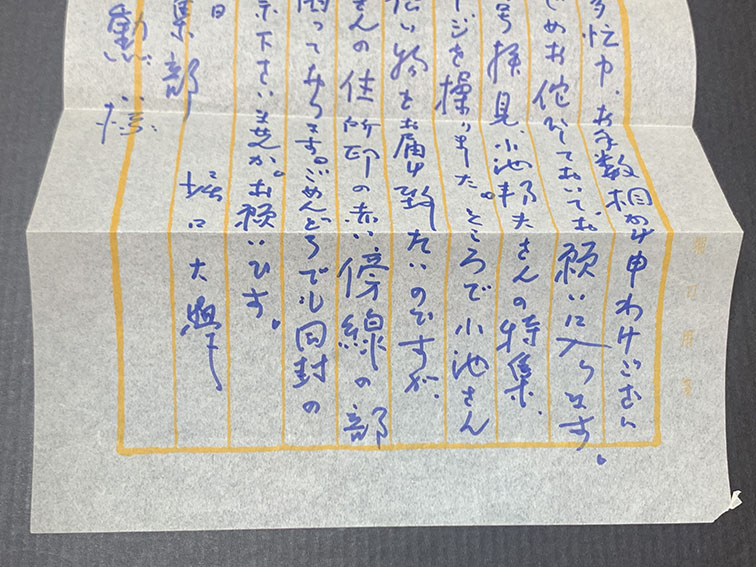 多忙中、お手数相かけ申わけございません
じめお侘びておいて、お願いに入ります。
号拝見、小池邦夫さんの特集、
ージを操りました。ところで小池さん
たい物をお届け致たいのですが、
さんの住所印の赤い傍線の部
困っております。ごめんどうでも同封の
示下さいませんか。お願いです。
日
集部
様
堀口大學